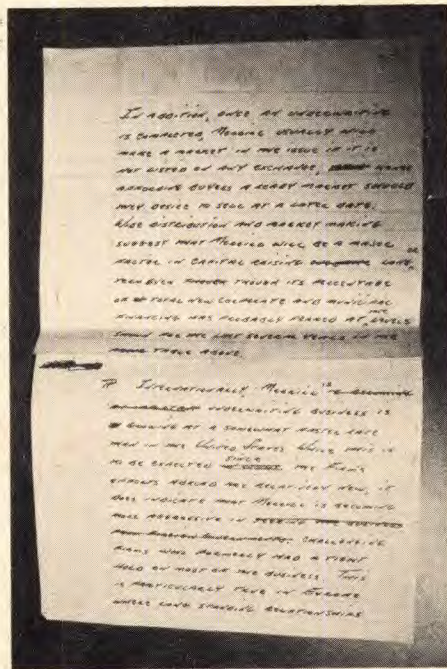 IN ADDITION, ONCE AN UNDERWRITING
IS COMPLETED, MERRILL USUALLY WILL
MAKE A MARKET IN THE ISSUE IF IT IS
NOT LISTED ON ANY EXCHANGE, HENCE
AFFORDING BUYERS A READY MARKET SHOULD
THEY DESIRE TO SELL AT A LATER DATE.
WIDE DISTRIBUTION AND MARKET MAKING
SUGGEST THAT MERRILL WILL BE A MAJOR
FACTOR IN CAPITAL RAISING LONG
TERM EVEN THOUGH ITS PERCENTAGE
OF TOTAL NEW CORPORATE AND MUNICIPAL
FINANCING HAS PROBABLY PEAKED AT THE LEVELS
SHOWN FOR THE LAST SEVERAL YEARS IN THE
TABLE ABOVE.
INTERNATIONALLY, MERRILL'S
UNDERWRITING BUSINESS IS
GROWING AT A SOMEWHAT FASTER RATE
THAN IN THE UNITED STATES. WHILE THIS IS
TO BE EXPECTED SINCE THE FIRM'S
EFFORTS ABROAD ARE RELATIVELY NEW, IT
DOES INDICATE THAT MERRILL IS BECOMING
MORE AGGRESSIVE IN
CHALLENGING
FIRMS WHO FORMERLY HAD A TIGHT
HOLD ON MOST OF THE BUSINESS. THIS
IS PARTICULARLY TRUE IN EUROPE
WHERE LONG STANDING RELATIONSHIPS